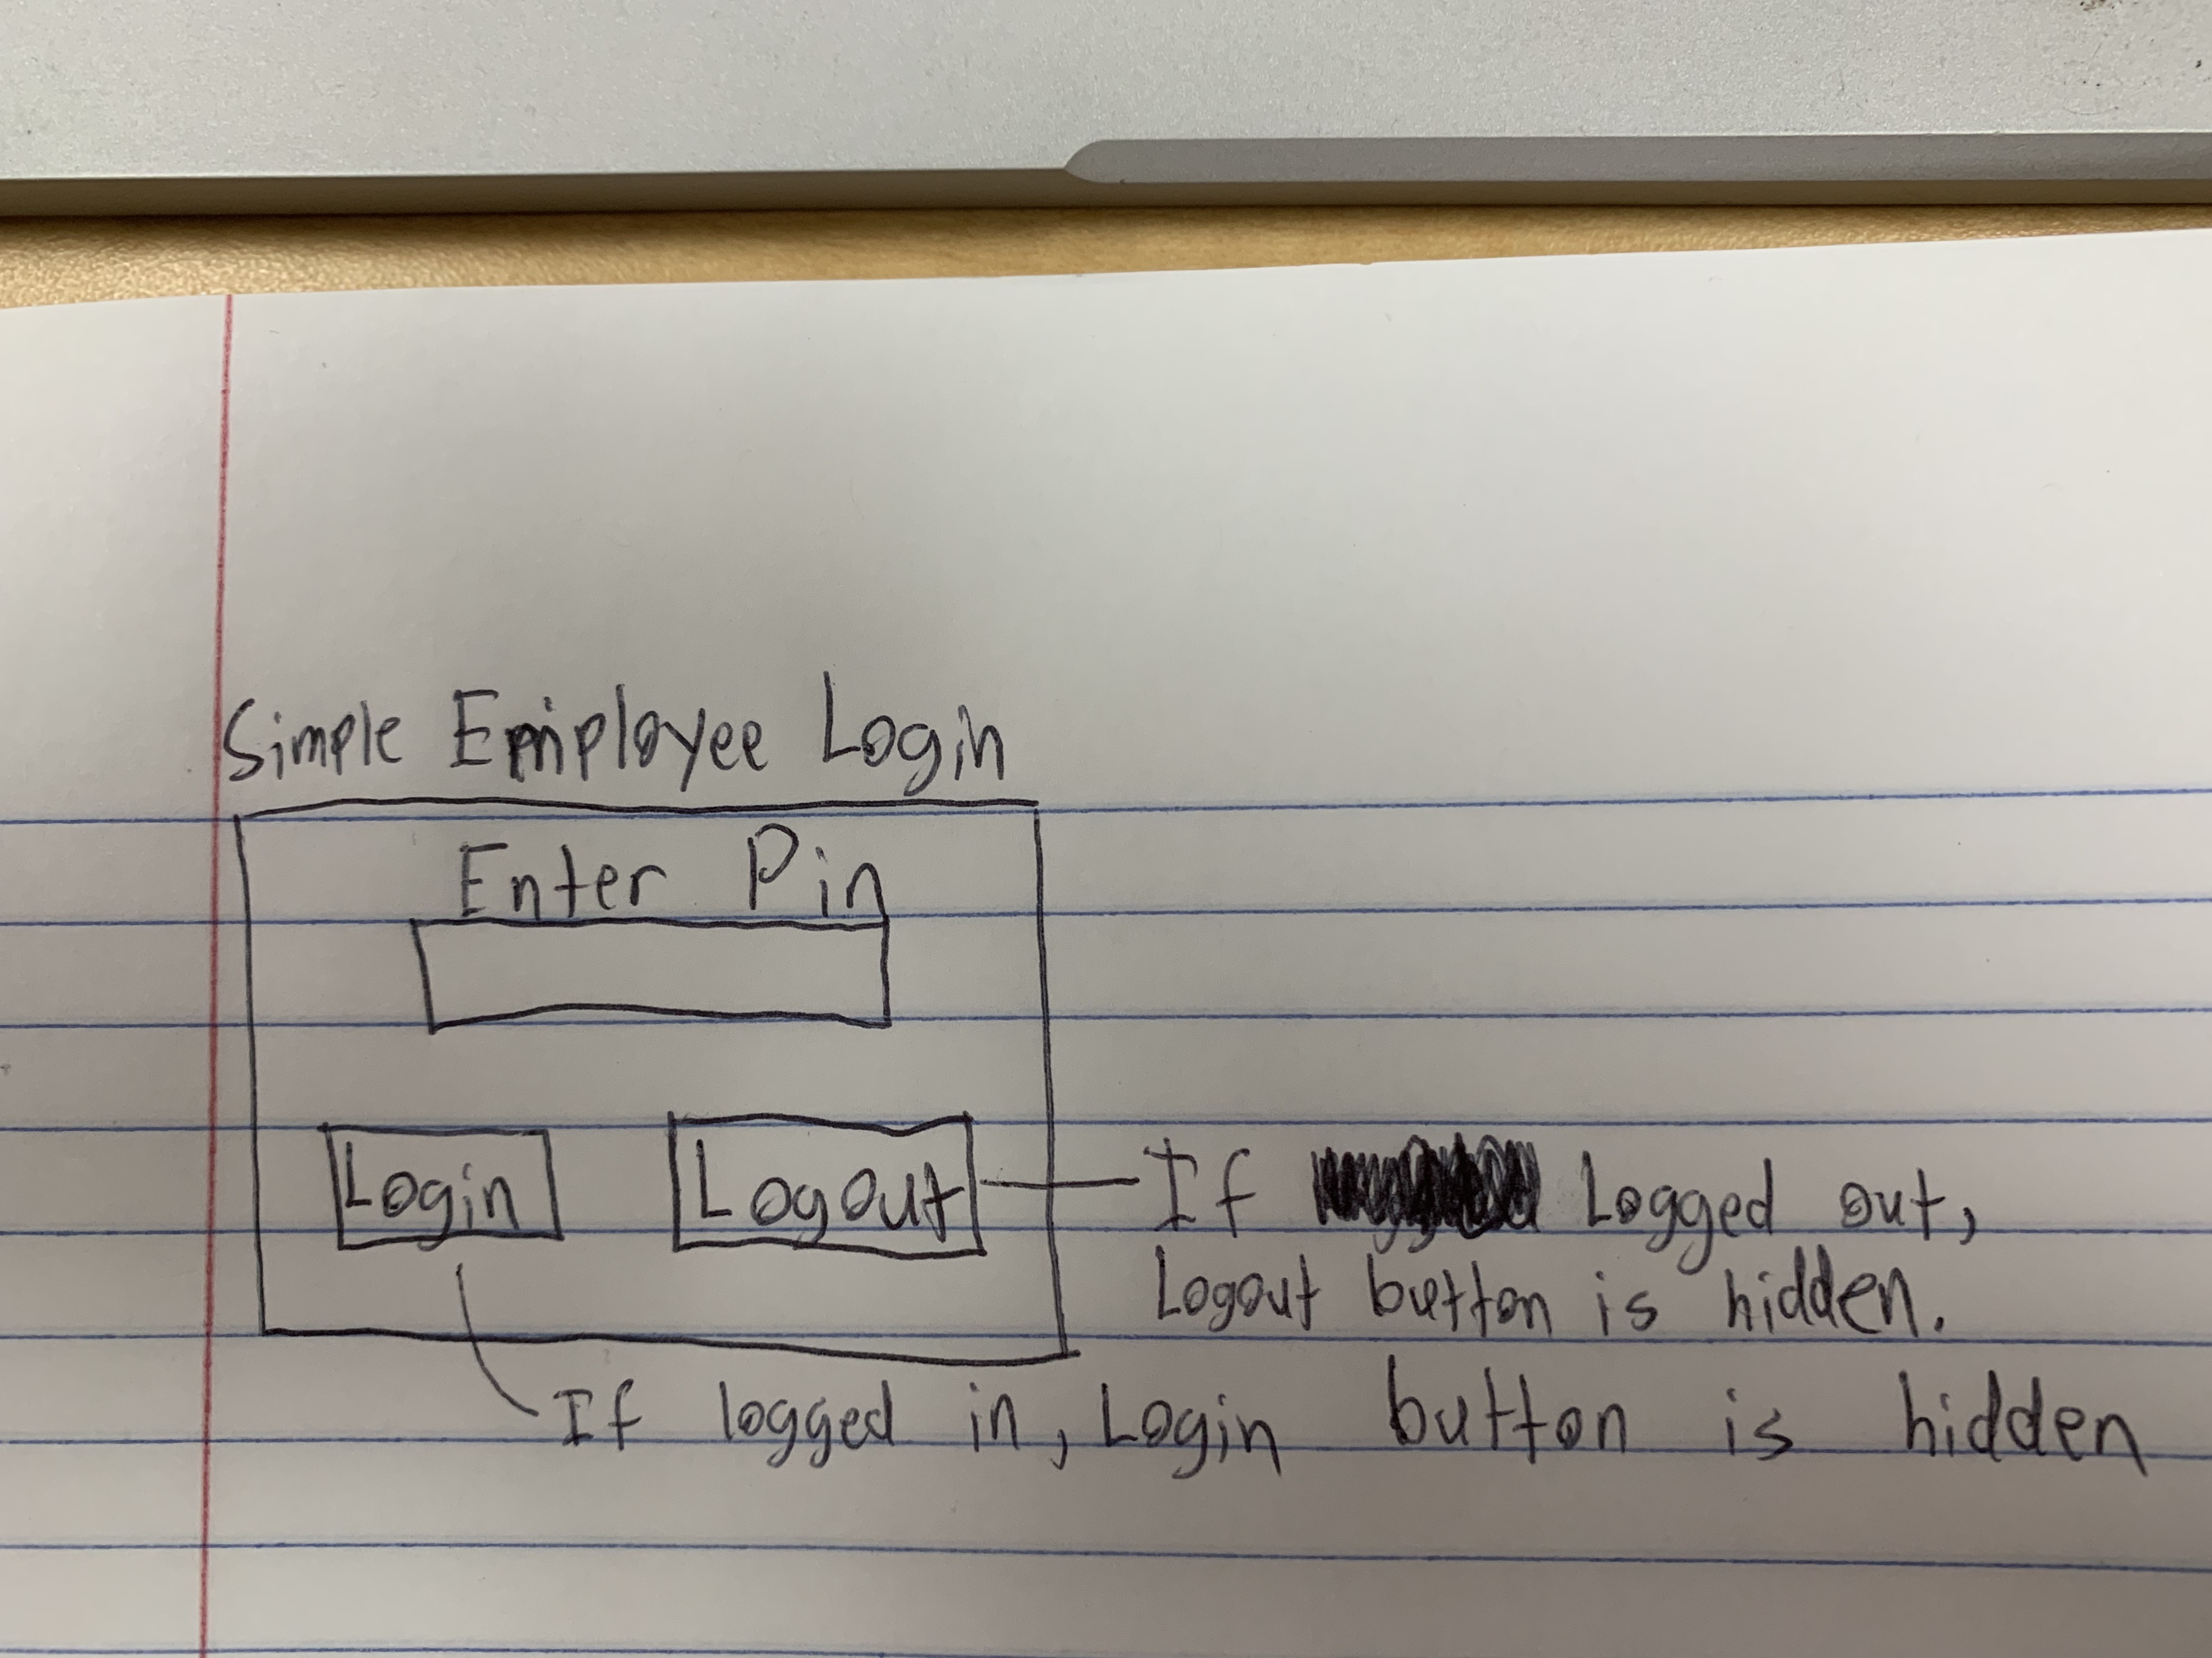 Simple Employee Login
Enter Pin
Login
Logout
If Logged out,
Logout button is hidden.
If logged in, Login button is hidden